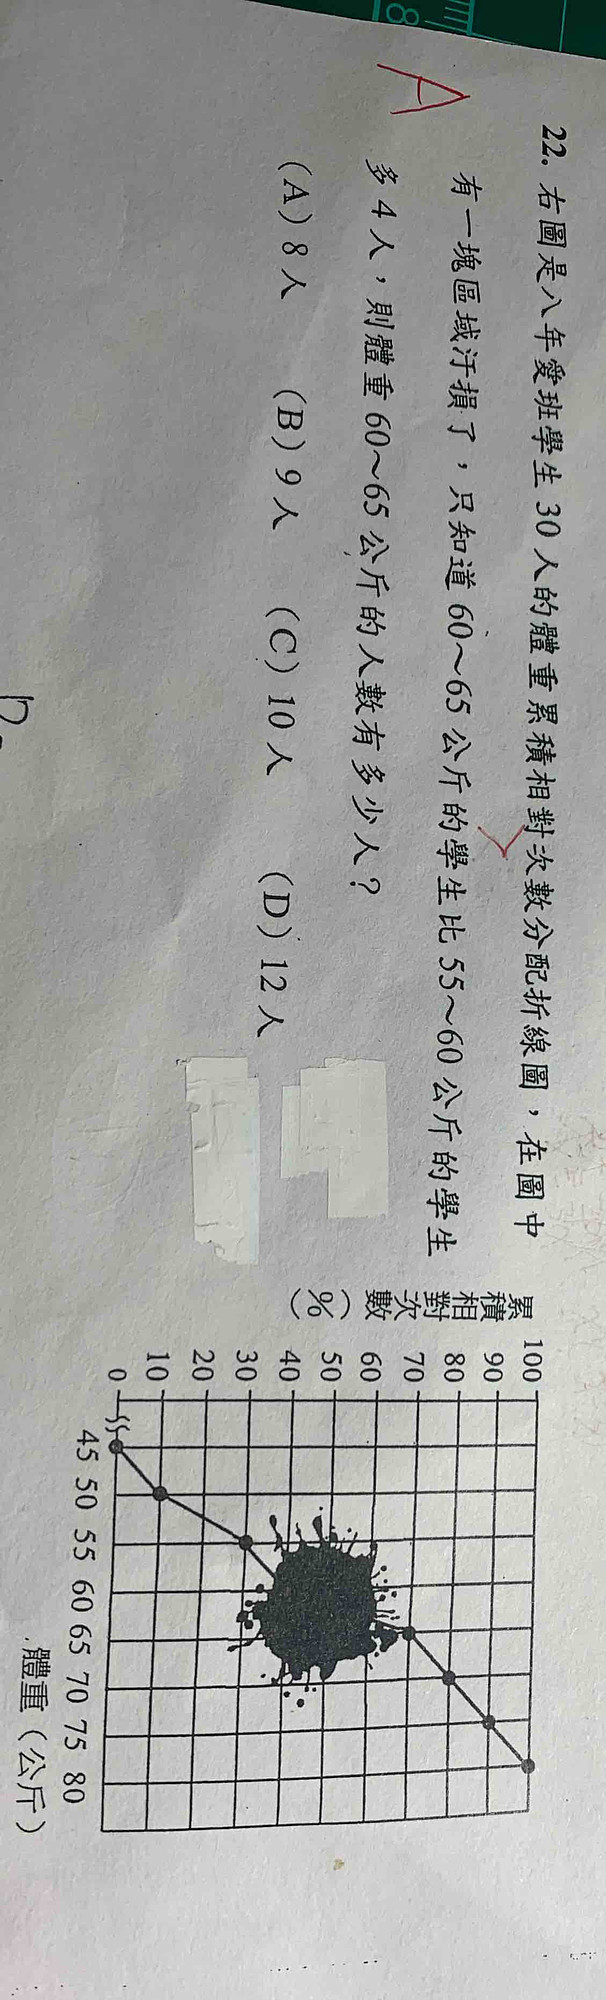 8
A
22. 右圖是八年愛班學生 30 人的體重累積相對次數分配折線圖，在圖中
有一塊區域汙損了，只知道 60～65 公斤的學生比 55～60 公斤的學生
多 4 人，則體重 60～65 公斤的人數有多少人？
(A) 8 人 (B) 9 人 (C) 10 人 (D) 12 人
累積相對次數(%)
100
90
80
70
60
50
40
30
20
10
0
45 50 55 60 65 70 75 80
體重（公斤）